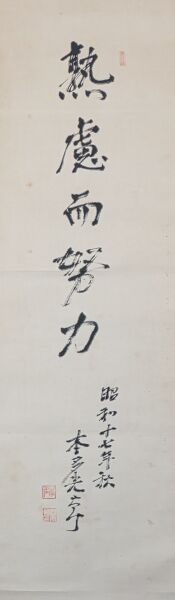 熟慮而努力
昭和十七年秋
本多光太郎